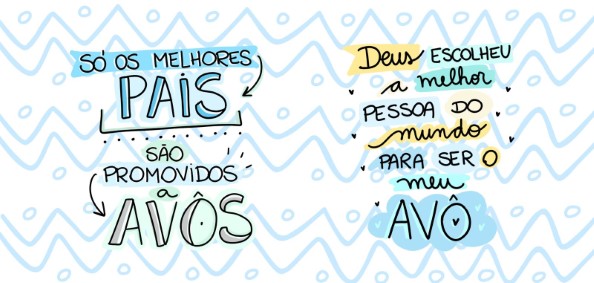 SÓ OS MELHORES
PAIS
SÃO
PROMOVIDOS
a
AVÔS
Deus ESCOLHEU
a melhor
PESSOA DO
mundo
PARA SER O
meu
AVÔ